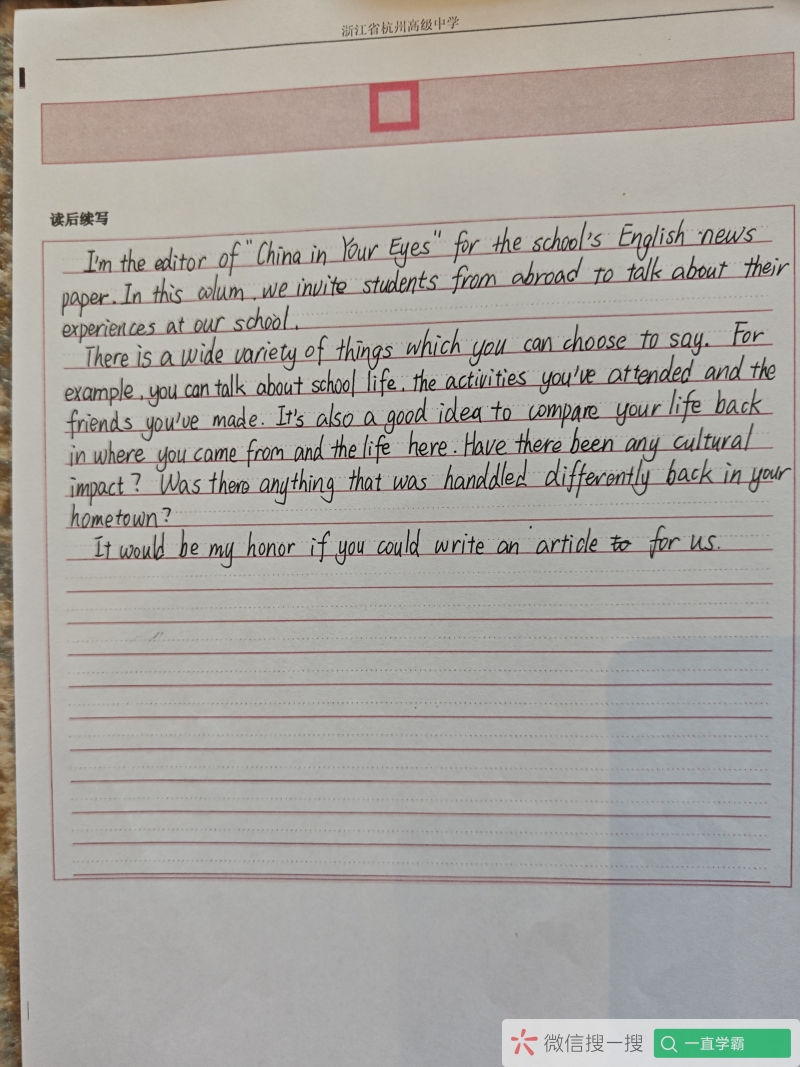 浙江省杭州高级中学
读后续写
I'm the editor of "China in Your Eyes" for the school's English news
paper. In this colum, we invite students from abroad to talk about their
experiences at our school.
There is a wide variety of things which you can choose to say. For
example, you can talk about school life, the activities you've attended and the
friends you've made. It's also a good idea to compare your life back
in where you came from and the life here. Have there been any cultural
impact? Was there anything that was handdled differently back in your
hometown?
It would be my honor if you could write an article to for us.
微信搜一搜
一直学霸